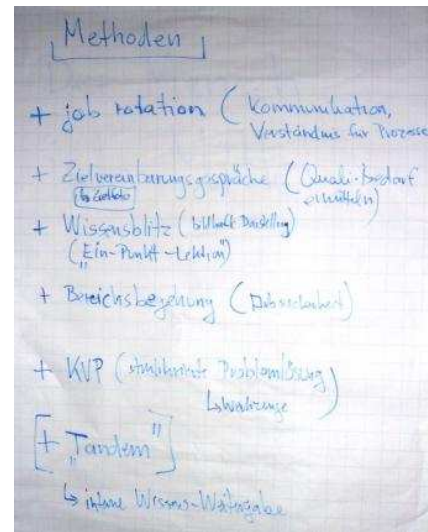 Methoden
+ job rotation (Kommunikation,
Verständnis für Prozesse
+ Zielvereinbarungsgespräche (Quali-Bedarf
ermitteln)
+ Wissensblitz (bildhaft Darstellung)
("Ein-Punkt-Lektion")
+ Bereichsbegehung (
+ KVP (strukturierte Problemlösung
↳ Werkzeuge)
[+ "Tandem"]
↳ interne Wissens-Weitergabe